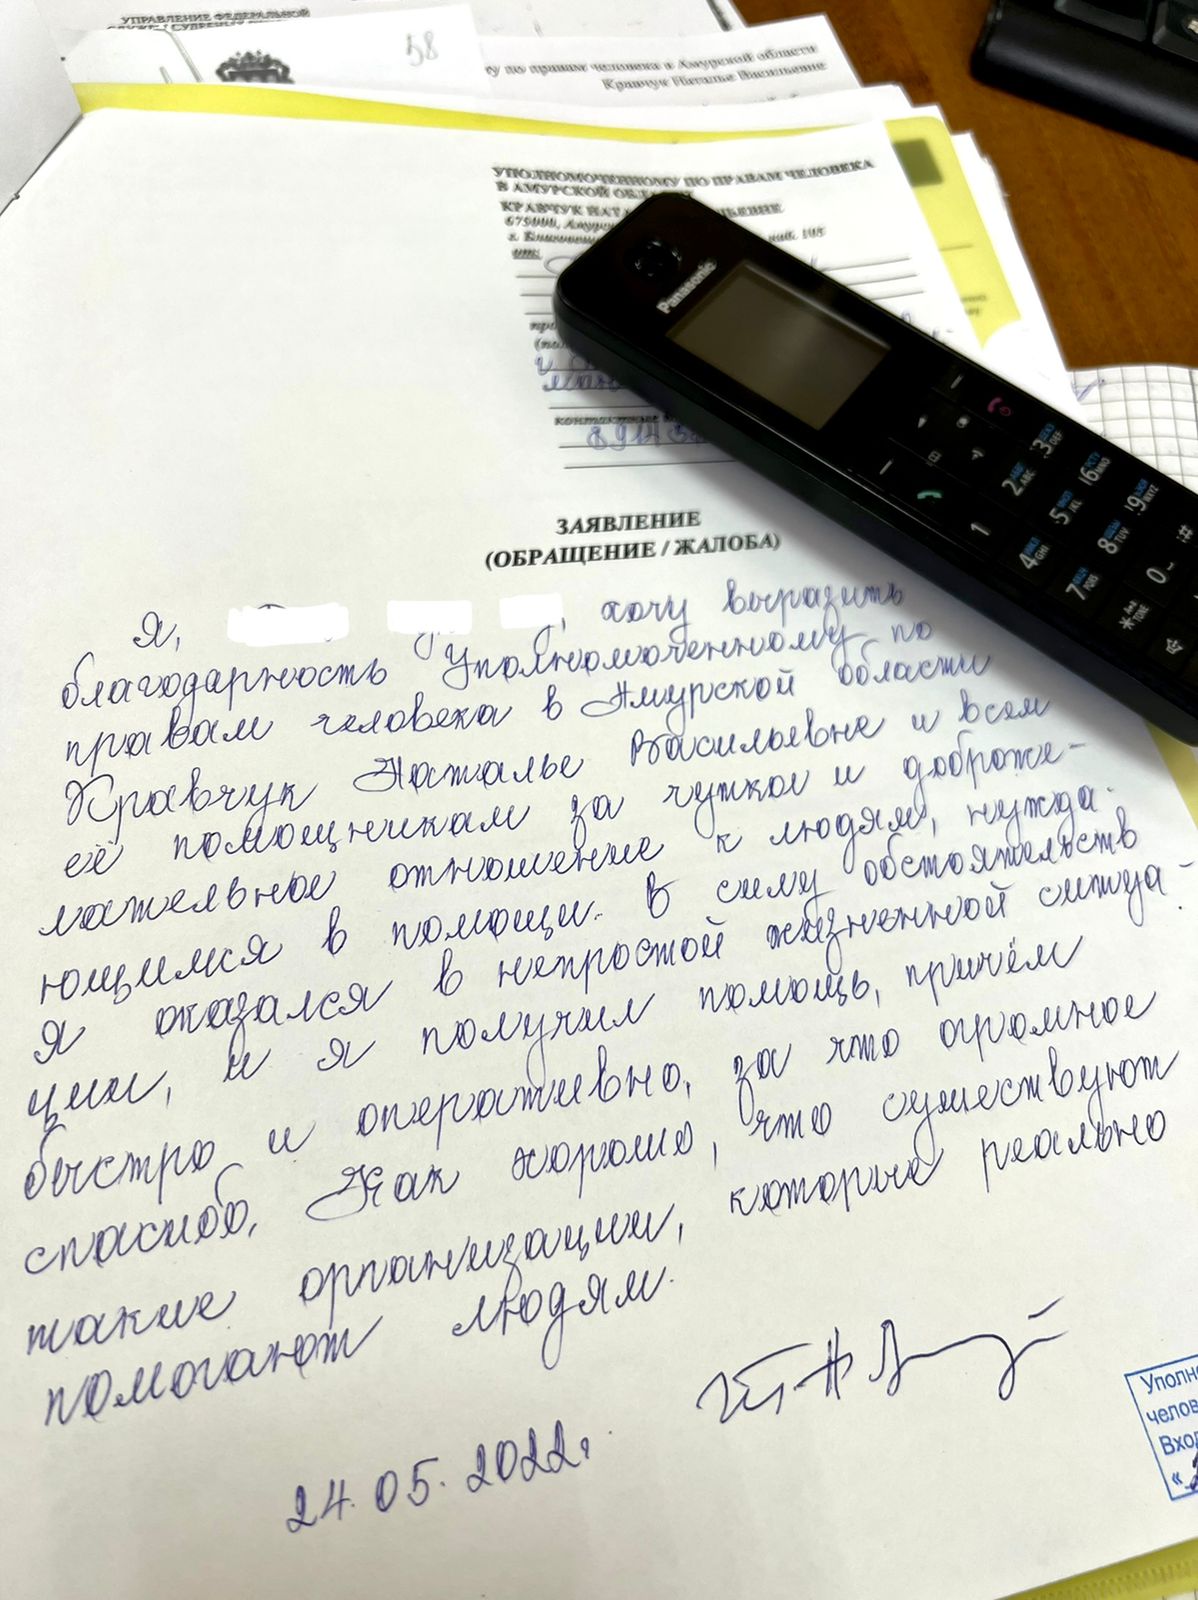 УПРАВЛЕНИЕ ФЕДЕРАЛЬНОЙ
58
му по правам человека в Амурской области
Кравчук Наталье Васильевне
УПОЛНОМОЧЕННОМУ ПО ПРАВАМ ЧЕЛОВЕКА
В АМУРСКОЙ
КРАВЧУК
675000,
г. каб. 105
от:
контактные
8914
Panasonic
ЗАЯВЛЕНИЕ
(ОБРАЩЕНИЕ / ЖАЛОБА)
Я, , хочу выразить
благодарность Уполномоченному по
правам человека в Амурской области
Кравчук Наталье Васильевне и всем
её помощникам за чуткое и доброже-
лательное отношение к людям, нужда-
ющимся в помощи. В силу обстоятельств
я оказался в непростой жизненной ситуа-
ции, и я получил помощь, причём
быстро и оперативно, за что огромное
спасибо. Как хорошо, что существуют
такие организации, которые реально
помогают людям.
24.05.2022г.
Уполно
челов
Вход
«
1
2 АБВГ ABC
3 ДЕЖЗ DEF
4 ИЙКЛ GHI
5 МНОП JKL
6 РСТУ MNO
7 ФХЦЧ PQRS
8 ШЩЪЫ TUV
9 ЬЭЮЯ WXYZ
* TONE
0
#